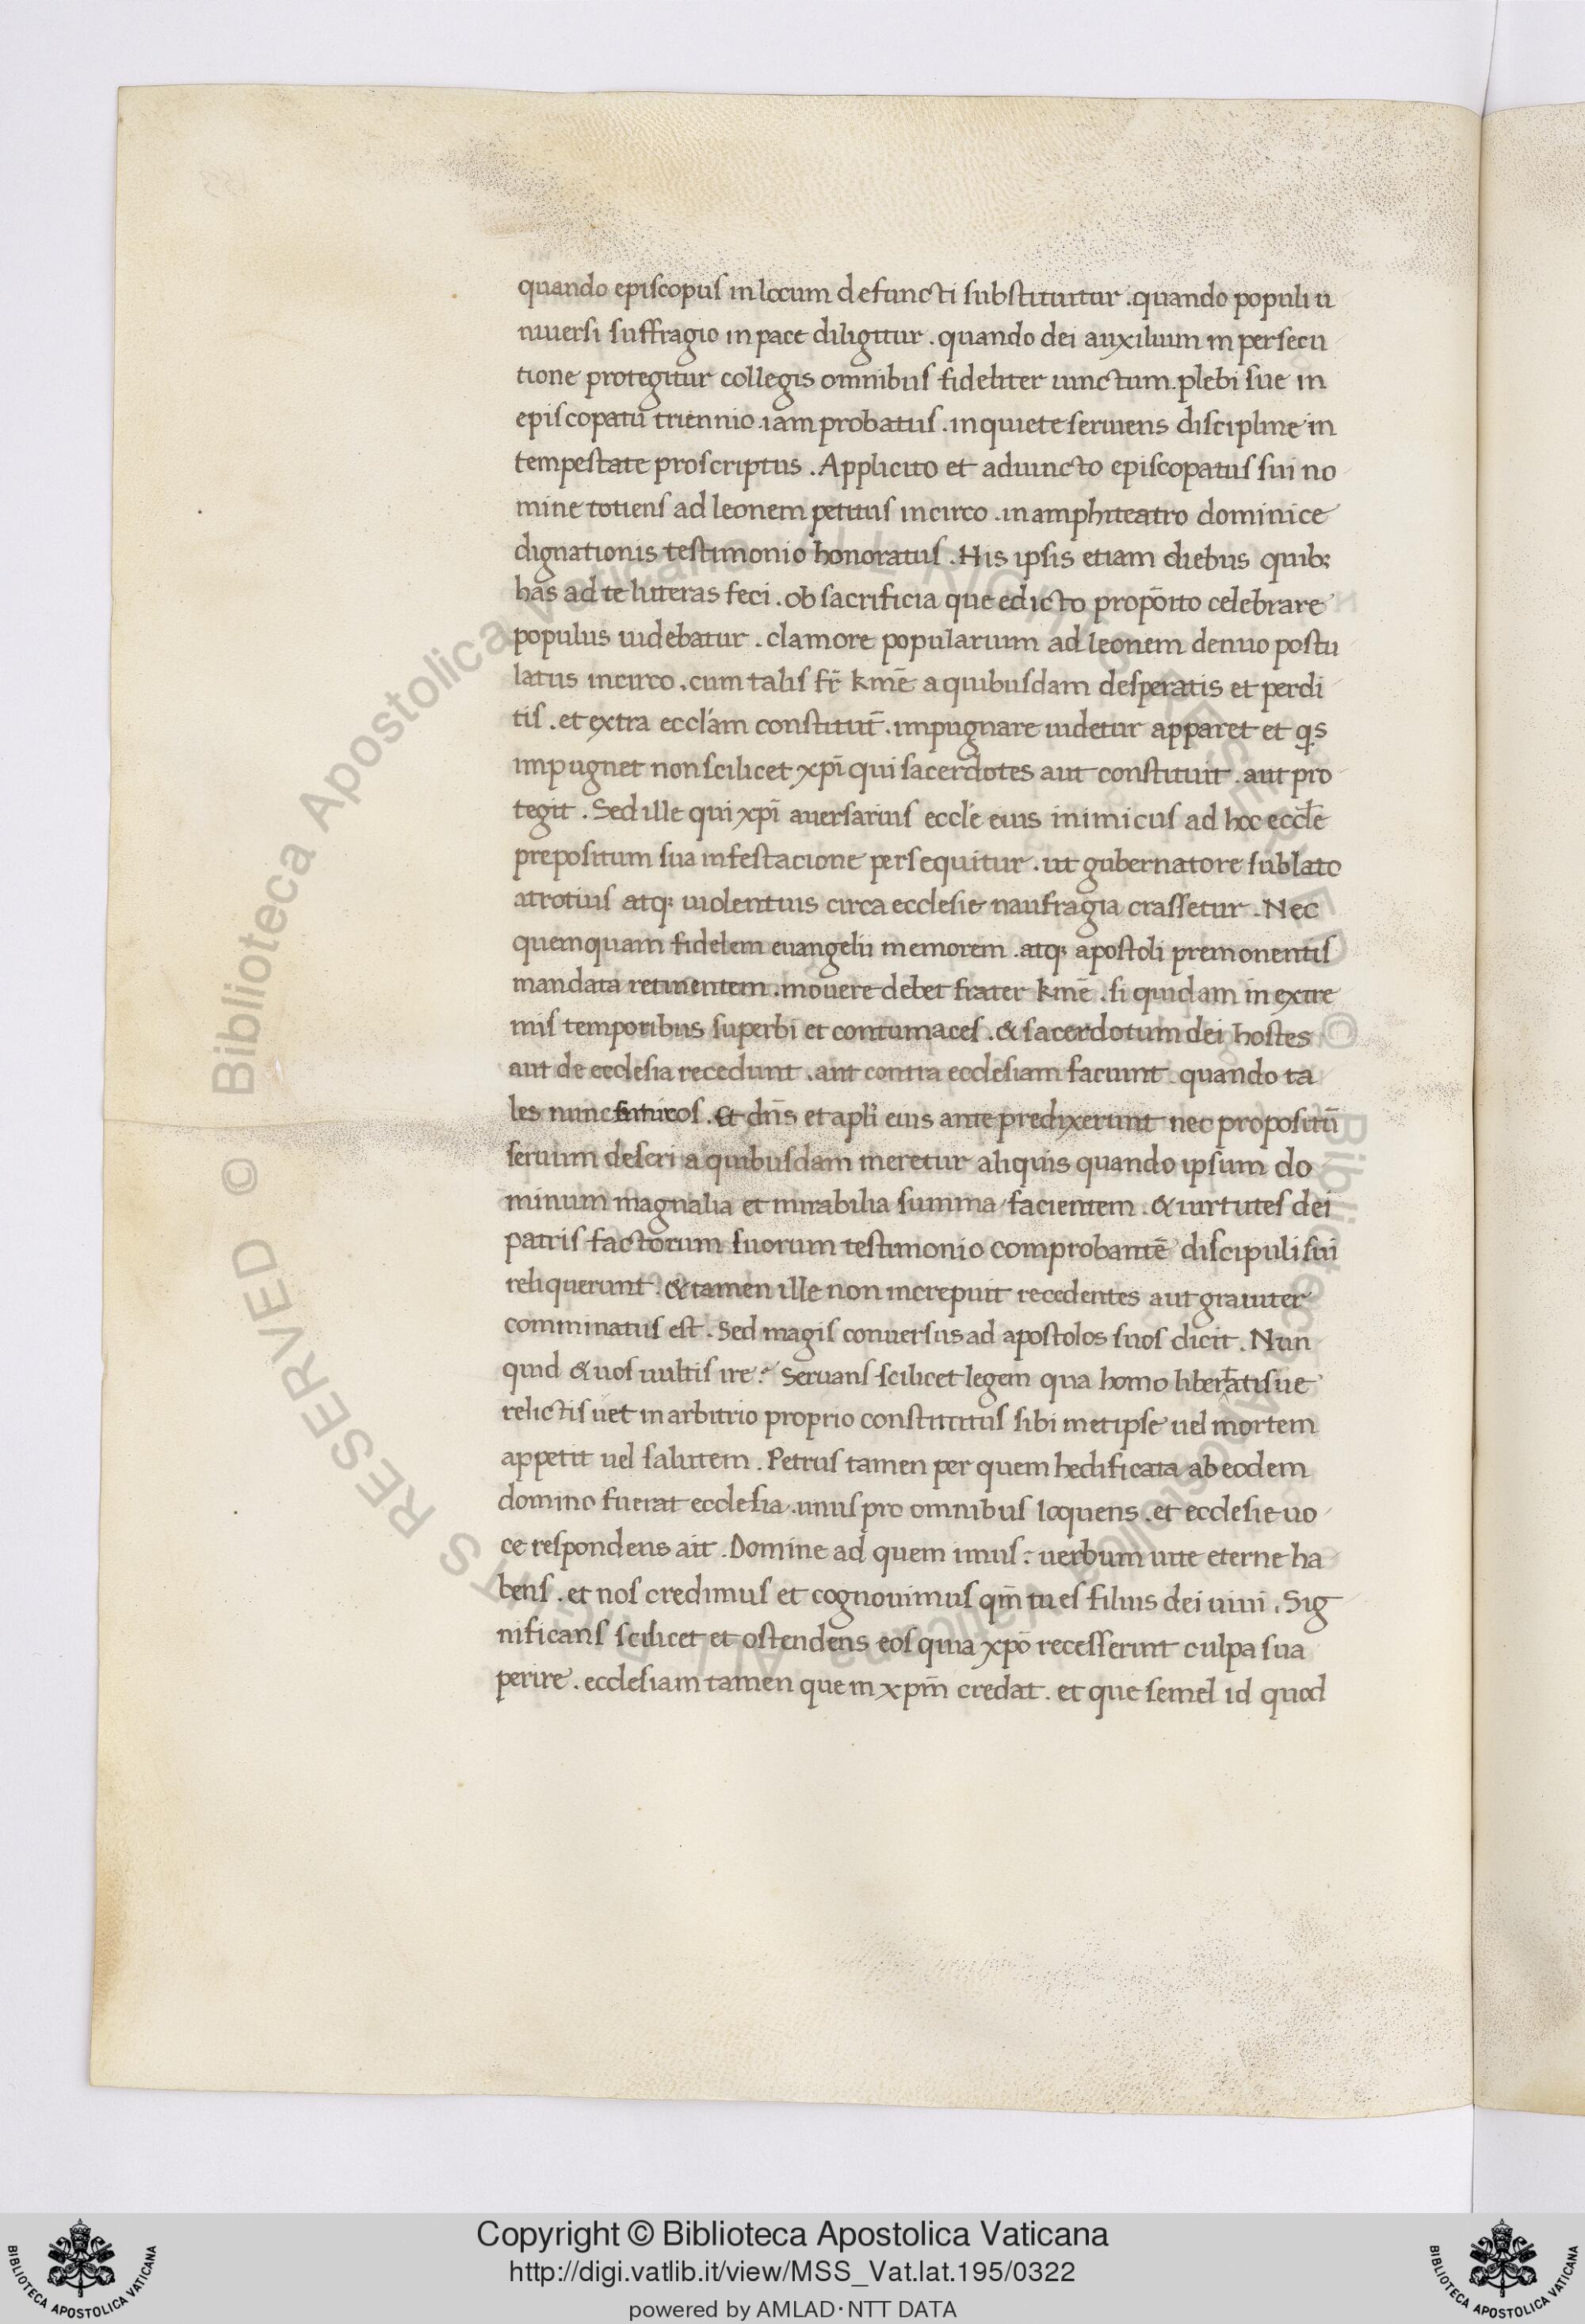 quando episcopus in locum defuncti substituitur . quando populi u
niuersi suffragio in pace diligitur . quando dei auxilium in persecu
tione protegitur collegis omnibus fideliter iunctum . plebi sue in
episcopatu triennio . iam probatus . in quiete seruiens discipline in
tempestate proscriptus . Applicito et adiuncto episcopatus sui no
mine totiens ad leonem petitus in circo . in amphiteatro dominice
dignationis testimonio honoratus . His ipsis etiam diebus quib;
has ad te litteras feci . ob sacrificia que edicto propoīto celebrare
populus uidebatur . clamore popularium ad leonem denuo postu
latus in circo . cum talis fr̄ kmē a quibusdam desperatis et perdi
tis . et extra ecclām constitut̄ . impugnare uidetur apparet et qs
impugnet non scilicet xpī qui sacerdotes aut constituit . aut pro
tegit . Sed ille qui xpī auersarius eccle eius inimicus ad hoc eccle
prepositum sua infestacione persequitur . ut gubernatore sublato
atrotius atq; uiolentius circa ecclesie naufragia crassetur . Nec
quemquam fidelem euangelii memorem . atq; apostoli premonentis
mandata retinentem . mouere debet frater kmē . si quidam in extre
mis temporibus superbi et contumaces . & sacerdotum dei hostes
aut de ecclesia recedunt . aut contra ecclesiam faciunt . quando ta
les nunc futuros . Et dn̄s et apl̄i eius ante predixerunt nec propositū
seruum deseri a quibusdam meretur aliquis quando ipsum do
minum magnalia et mirabilia summa facientem . & uirtutes dei
patris factorum suorum testimonio comprobantē discipuli sui
reliquerunt . & tamen ille non increpuit recedentes aut grauiter
comminatus est . Sed magis conuersus ad apostolos suos dicit . Nun
quid & uos uultis ire ? Seruans scilicet legem qua homo libertatis ue
relictis uet in arbitrio proprio constitutus sibi metipse uel mortem
appetit uel salutem . Petrus tamen per quem hedificata ab eodem
domino fuerat ecclesia . unus pro omnibus loquens . et ecclesie uo
ce respondens ait . Domine ad quem imus : uerbum uite eterne ha
bens . et nos credimus et cognouimus qm̄ tu es filius dei uiui . Sig
nificans scilicet et ostendens eos quia xpō recesserint culpa sua
perire . ecclesiam tamen que in xpm̄ credat . et que semel id quod
Copyright © Biblioteca Apostolica Vaticana
http://digi.vatlib.it/view/MSS_Vat.lat.195/0322
powered by AMLAD·NTT DATA